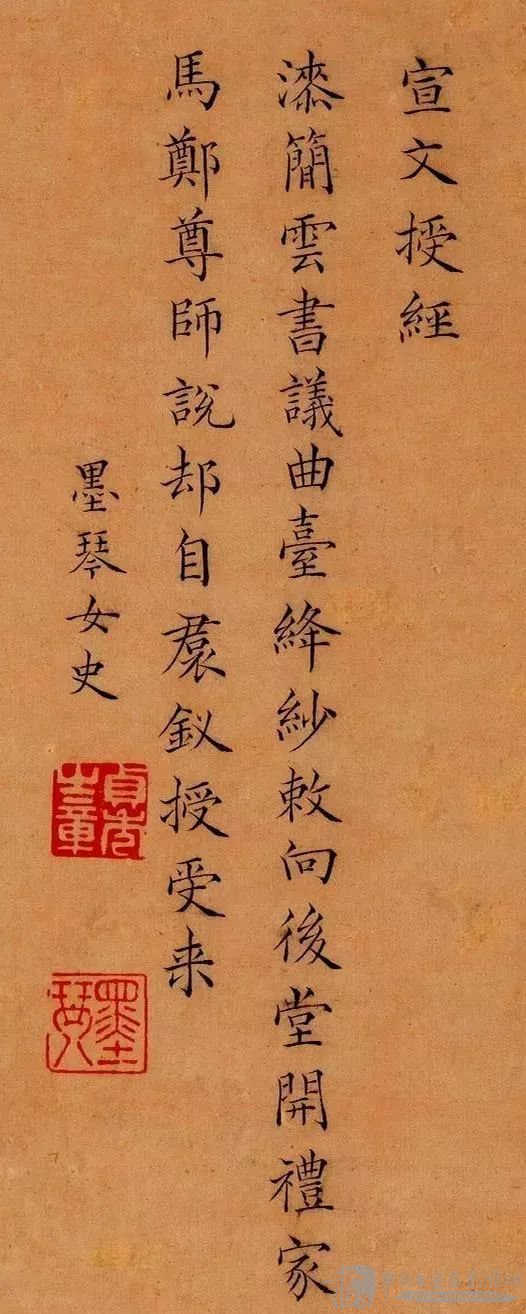 宣文授經
漆簡雲書議曲臺絳紗敕向後堂開禮家
馬鄭尊師說却自裠釵授受来
墨琴女史
貞秀
墨琴